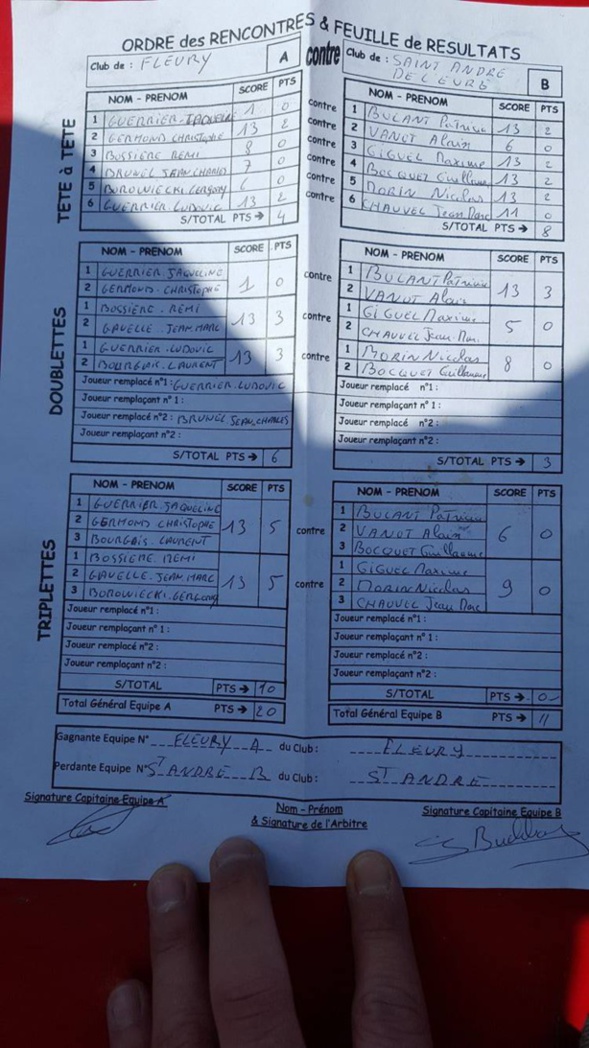 ORDRE des RENCONTRES & FEUILLE de RESULTATS
Club de : FLEURY A contre Club de : SAINT ANDRE DE L'EURE B
TÊTE à TÊTE
NOM - PRENOM SCORE PTS contre NOM - PRENOM SCORE PTS
1 GUERRIER JAQUELINE 1 0 contre 1 BULANT Patrice 13 2
2 GERMOND CHRISTOPHE 13 2 contre 2 VANOT Alain 6 0
3 BOSSIERE REMI 8 0 contre 3 GIGUEL Maxime 13 2
4 BRUNEL JEAN CHARLES 7 0 contre 4 BOCQUET Guillaume 13 2
5 BOROWIECKI GERGORY 6 0 contre 5 MORIN Nicolas 13 2
6 GUERRIER LUDOVIC 13 2 contre 6 CHAUVEL Jean Marc 11 0
S/TOTAL PTS → 4 S/TOTAL PTS → 8
DOUBLETTES
NOM - PRENOM SCORE PTS NOM - PRENOM SCORE PTS
1 GUERRIER JAQUELINE 1 0 contre 1 BULANT Patrice 13 3
2 GERMOND CHRISTOPHE 2 VANOT Alain
1 BOSSIERE REMI 13 3 contre 1 GIGUEL Maxime 5 0
2 GAVELLE JEAN MARC 2 CHAUVEL Jean Marc
1 GUERRIER LUDOVIC 13 3 contre 1 MORIN Nicolas 8 0
2 BOURGAIS LAURENT 2 BOCQUET Guillaume
Joueur remplacé n°1 : GUERRIER LUDOVIC Joueur remplacé n°1 :
Joueur remplaçant n°1 : Joueur remplaçant n°1 :
Joueur remplacé n°2 : BRUNEL JEAN CHARLES Joueur remplacé n°2 :
Joueur remplaçant n°2 : Joueur remplaçant n°2 :
S/TOTAL PTS → 6 S/TOTAL PTS → 3
TRIPLETTES
NOM - PRENOM SCORE PTS NOM - PRENOM SCORE PTS
1 GUERRIER JAQUELINE 1 BULANT Patrice
2 GERMOND CHRISTOPHE 13 5 contre 2 VANOT Alain 6 0
3 BOURGAIS LAURENT 3 BOCQUET Guillaume
1 BOSSIERE REMI 1 GIGUEL Maxime
2 GAVELLE JEAN MARC 13 5 contre 2 MORIN Nicolas 9 0
3 BOROWIECKI GERGORY 3 CHAUVEL Jean Marc
Joueur remplacé n°1 : Joueur remplacé n°1 :
Joueur remplaçant n° 1 : Joueur remplaçant n° 1 :
Joueur remplacé n°2 : Joueur remplacé n°2 :
Joueur remplaçant n°2 : Joueur remplaçant n°2 :
S/TOTAL PTS → 10 S/TOTAL PTS → 0
Total Général Equipe A PTS → 20 Total Général Equipe B PTS → 11
Gagnante Equipe N° FLEURY A du Club : FLEURY
Perdante Equipe N° ST ANDRE B du Club : ST ANDRE
Signature Capitaine Equipe A Nom - Prénom Signature Capitaine Equipe B
& Signature de l'Arbitre